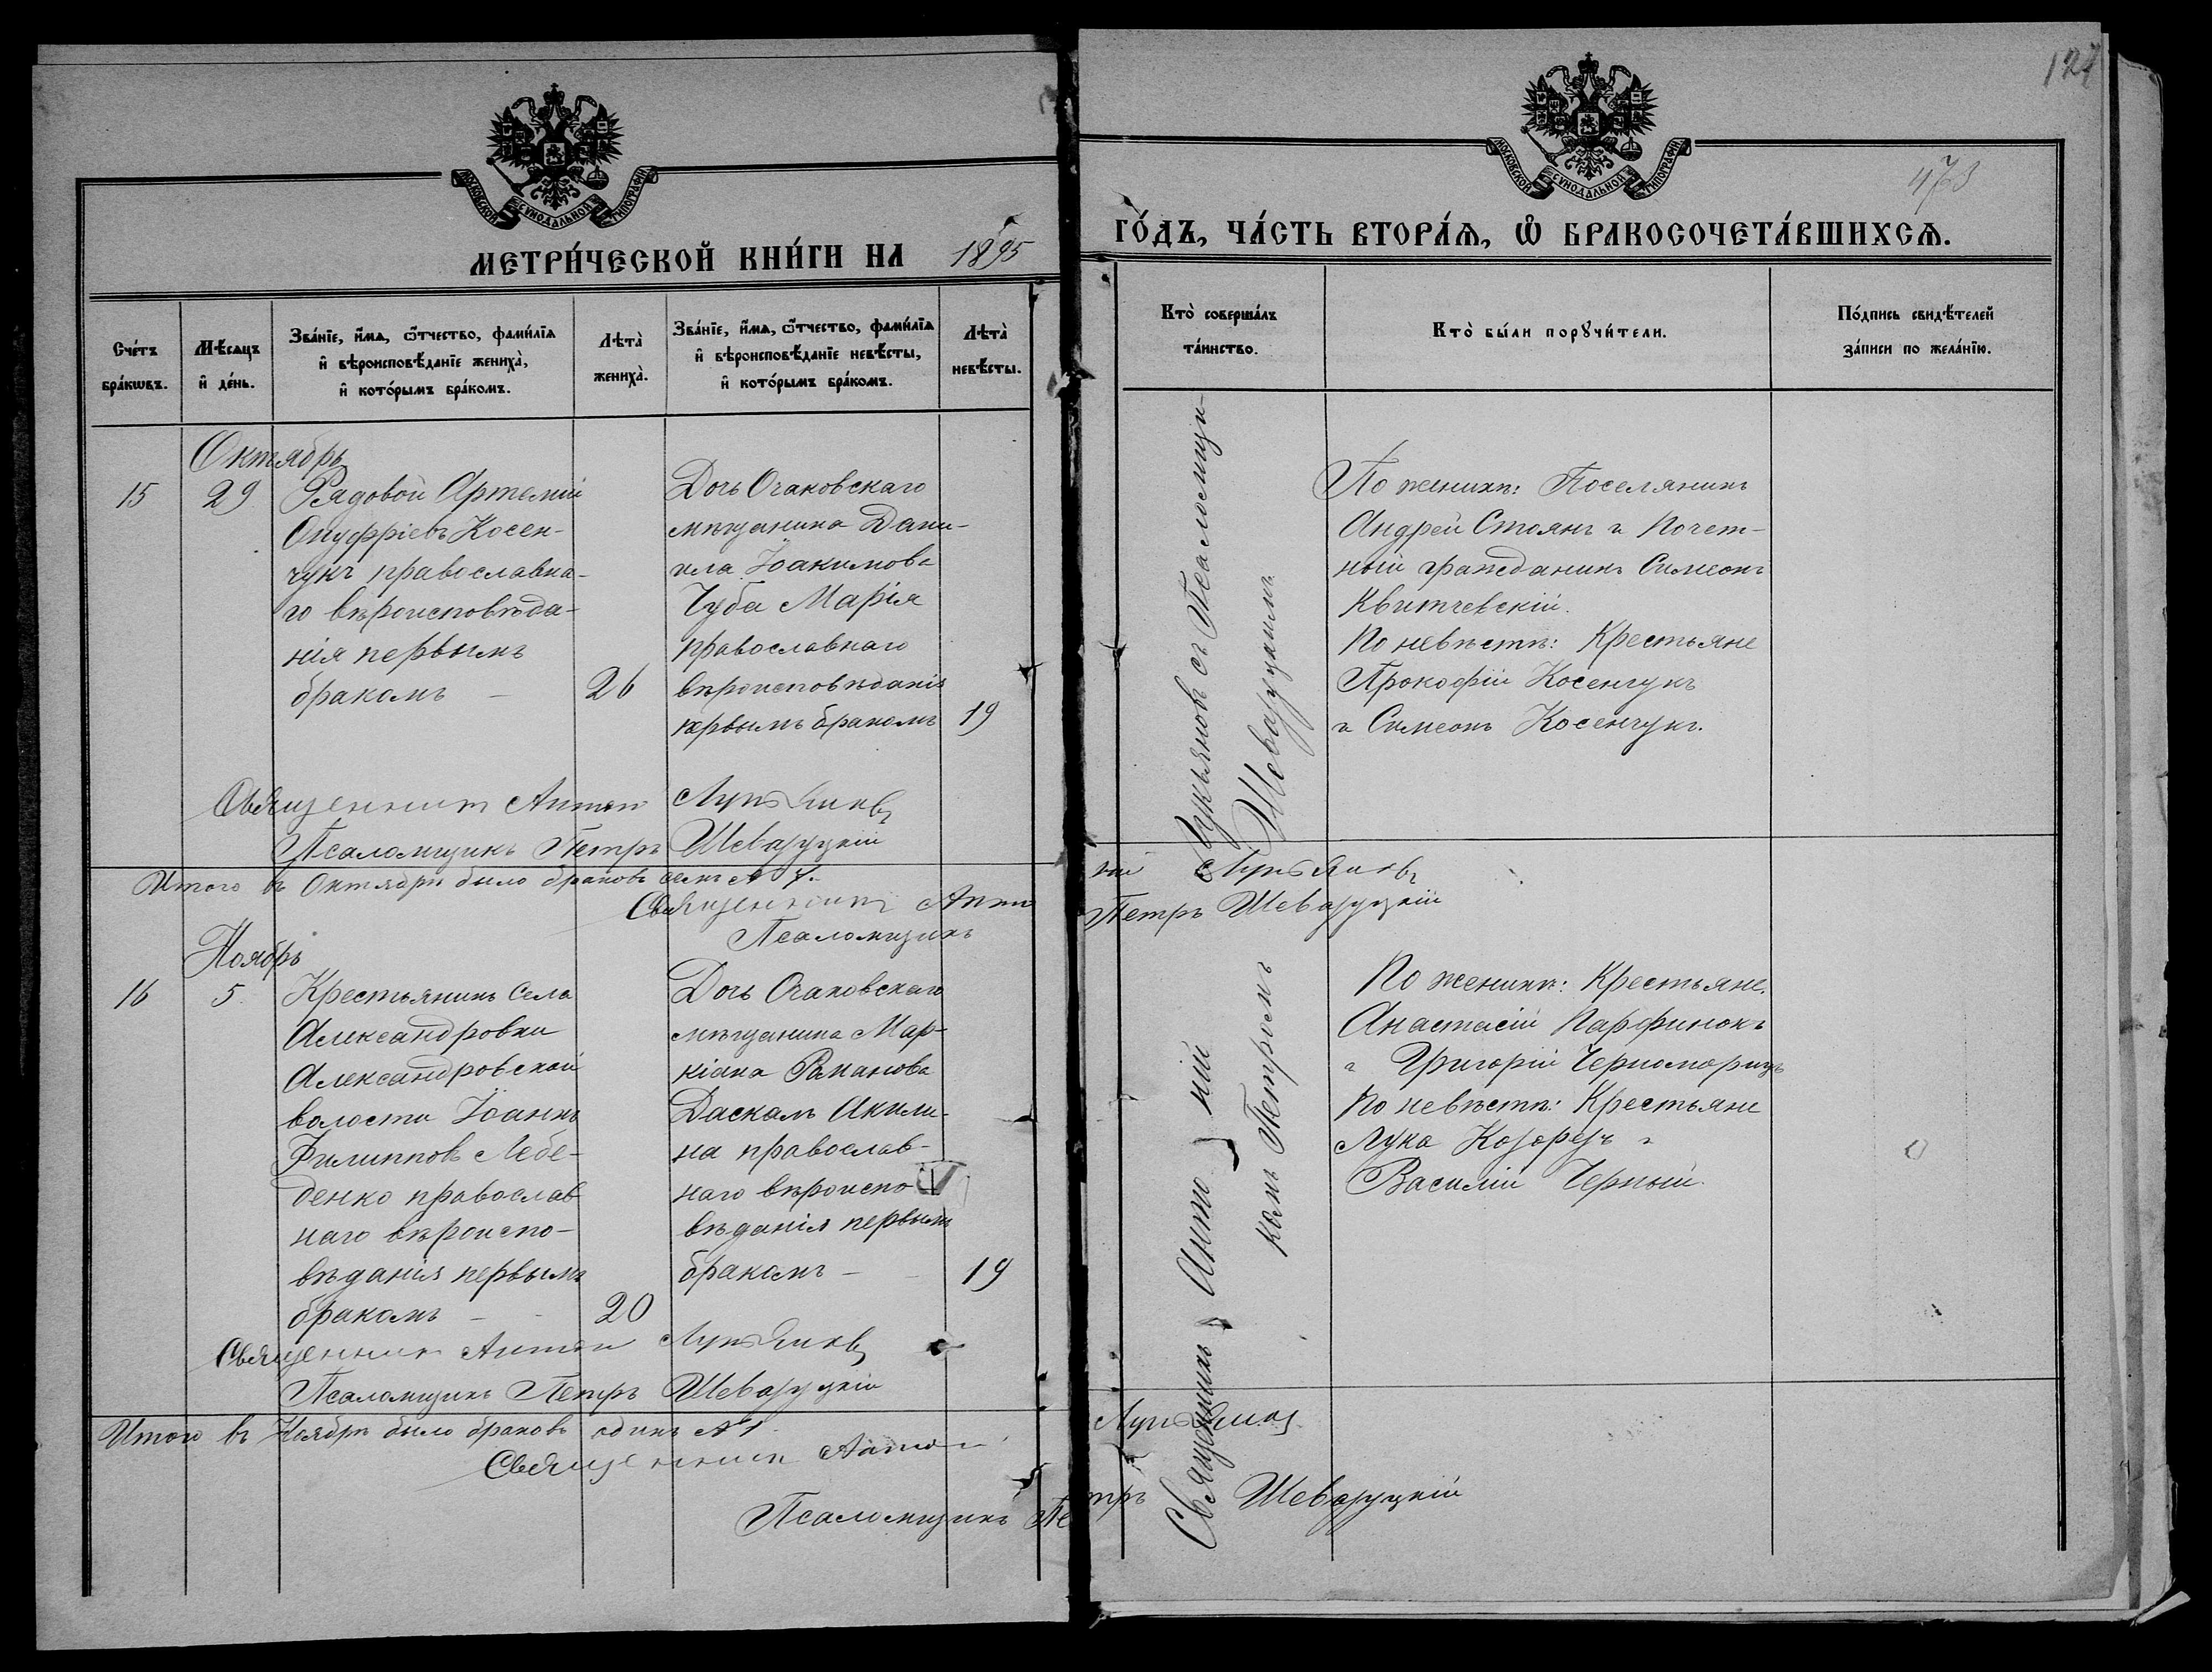 127
473
МОСКОВСКОЙ СѴНОДАЛЬНОЙ ТИПОГРАФІИ
МОСКОВСКОЙ СѴНОДАЛЬНОЙ ТИПОГРАФІИ
МЕТРИ́ЧЕСКОЙ КНИ́ГИ НА 1895
ГО́ДЪ, ЧА́СТЬ ВТОРА́Ѧ, Ѡ҆ БРАКОСОЧЕТА́ВШИХСѦ.
Сче́тъ
бра́кѡвъ.
Мѣ́сѧцъ
и҆ де́нь.
Зва́нїе, и҆́мѧ, ѻ҆́тчество, фами́лїѧ
и҆ вѣроисповѣ́данїе жениха̀,
и҆ кото́рымъ бра́комъ.
Лѣта̀
жениха̀.
Зва́нїе, и҆́мѧ, ѻ҆́тчество, фами́лїѧ
и҆ вѣроисповѣ́данїе невѣ́сты,
и҆ кото́рымъ бра́комъ.
Лѣта̀
невѣ́сты.
Кто̀ соверша́лъ
та́инство.
Кто̀ бы́ли порꙋчи́тели.
По́дпись свидѣ́телей
за́писи по жела́нїю.
Октябрь
15
29
Рядовой Артемій
Онуфріевъ Косен-
чукъ православна-
го вѣроисповѣда-
нія первымъ
бракомъ –
26
Дочь Очаковскаго
мѣщанина Дани-
ила Іоакимова
Чуба Марія
православнаго
вѣроисповѣданія
первымъ бракомъ
19
Священникъ Антоній Лукьяновъ
Псаломщикъ Петръ Шеваруцкій
По женихѣ: Поселянинъ
Андрей Стоянъ и Почет-
ный гражданинъ Симеонъ
Квитчевскій.
По невѣстѣ: Крестьяне
Прокофій Косенчукъ
и Симеонъ Косенчукъ.
Итого въ Октябрѣ было браковъ семь № 7.
Священникъ Антоній Лукьяновъ
Псаломщикъ Петръ Шеваруцкій
Ноябрь
16
5.
Крестьянинъ села
Александровки
Александровской
волости Іоаннъ
Филипповъ Лебе-
денко православ
наго вѣроиспо-
вѣданія первымъ
бракомъ – –
20
Дочь Очаковскаго
мѣщанина Мар-
кіана Романова
Даскалъ Акили-
на православ-
наго вѣроиспо
вѣданія первымъ
бракомъ – –
19
Священникъ Антоній Лукьяновъ
Псаломщикъ Петръ Шеваруцкій
Священникъ Антоній Лукьяновъ съ Псаломщи-
комъ Петромъ Шеваруцкимъ
По женихѣ: Крестьяне.
Анастасій Парфинокъ
и Григорій Черноморецъ
По невѣстѣ: Крестьяне
Лука Козорезъ и
Василій Черный.
Итого въ Ноябрѣ было браковъ одинъ № 1
Священникъ Антоній Лукьяновъ
Псаломщикъ Петръ Шеваруцкій